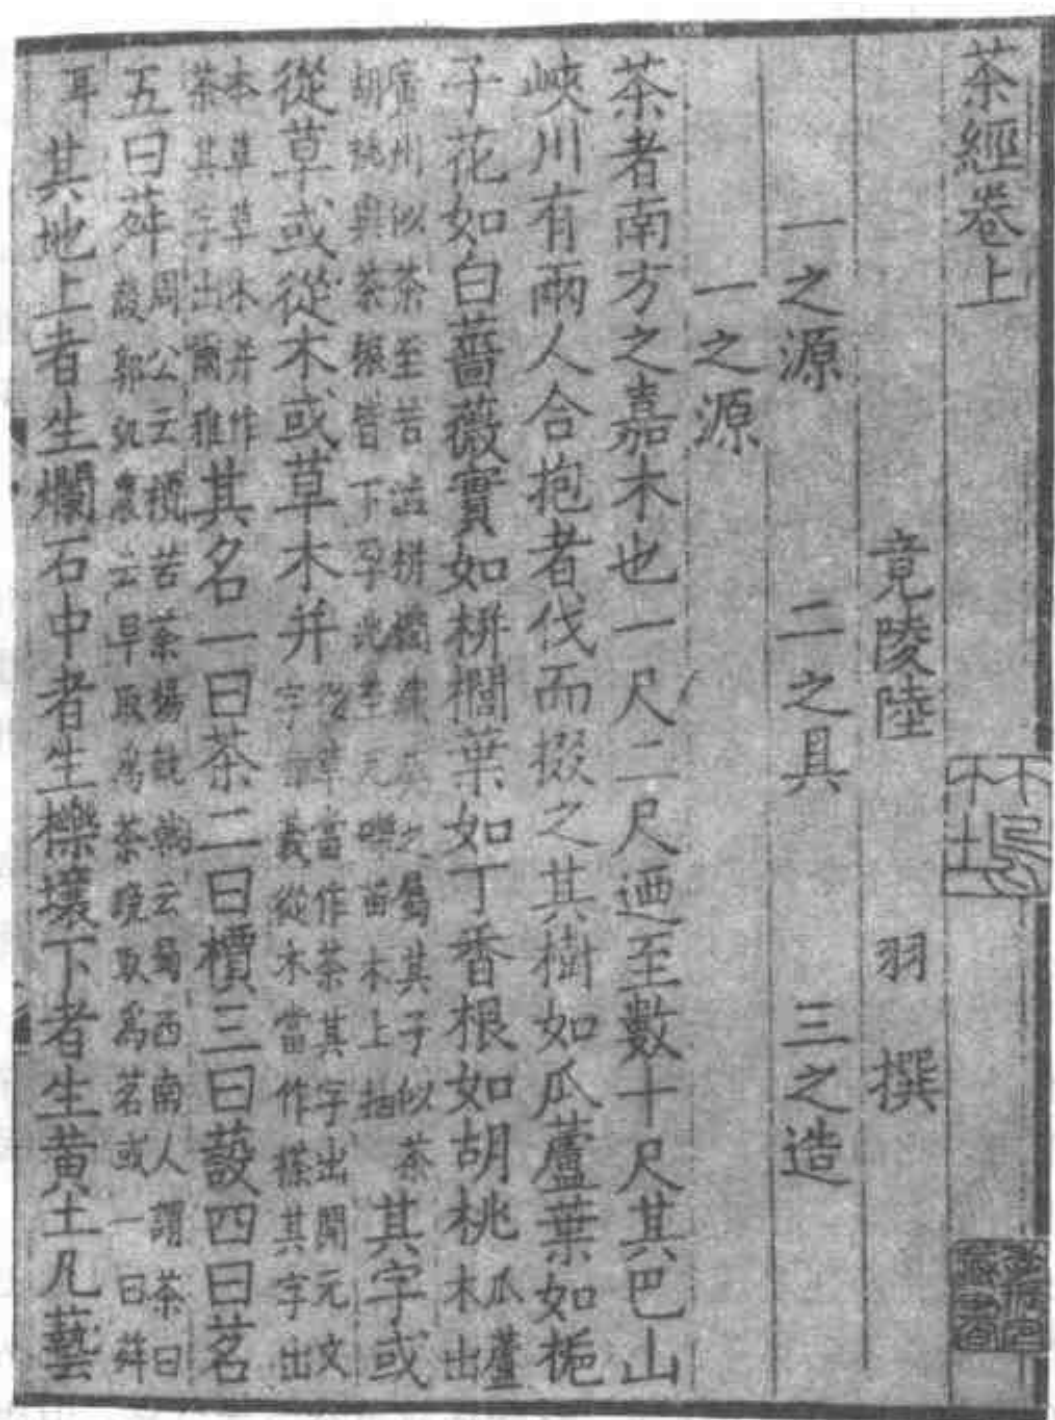 茶經卷上
竟陵陸 羽 撰
一之源 二之具 三之造
一之源
茶者南方之嘉木也一尺二尺迺至數十尺其巴山
峽川有兩人合抱者伐而掇之其樹如瓜蘆葉如梔
子花如白薔薇實如栟櫚葉如丁香根如胡桃 瓜蘆木出
廣州似茶至苦澁栟櫚蒲葵之屬其子似茶胡桃與茶根皆下孕兆至瓦礫苗木上抽 其字或
從草或從木或草木并 從草當作茶其字出開元文字音義從木當作搽其字出
本草草木并作荼其字出爾雅 其名一曰茶二曰檟三曰蔎四曰茗
五曰荈 周公云檟苦荼楊執戟云蜀西南人謂茶曰蔎郭弘農云早取爲茶晚取爲茗或一曰荈
耳 其地上者生爛石中者生櫟壤下者生黄土凡藝